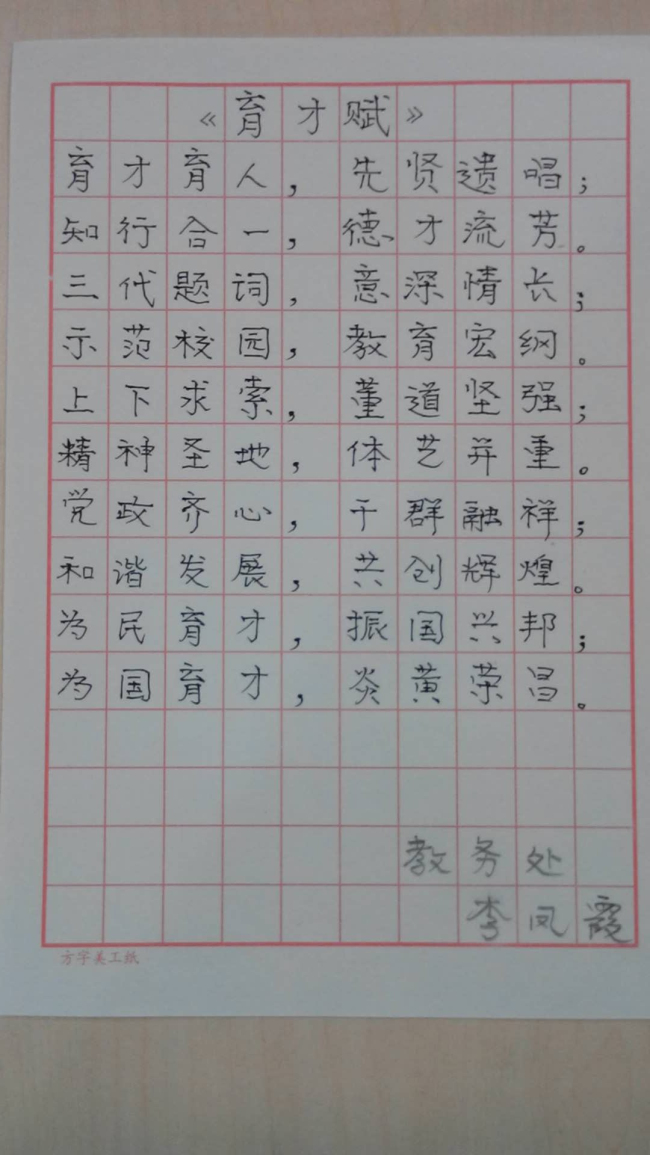 《育才赋》
育才育人，先贤遗唱；
知行合一，德才流芳。
三代题词，意深情长；
示范校园，教育宏纲。
上下求索，董道坚强；
精神圣地，体艺并重。
党政齐心，干群融祥；
和谐发展，共创辉煌。
为民育才，振国兴邦；
为国育才，炎黄荣昌。
教务处
李凤霞
方字美工纸